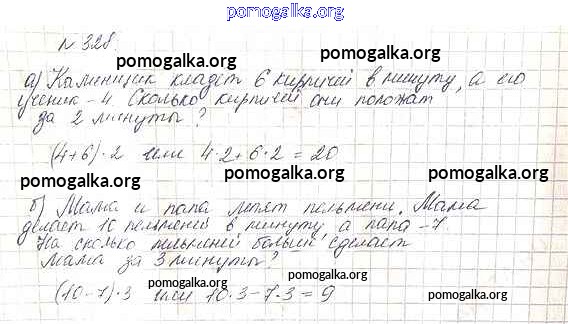 pomogalka.org
№ 328.
pomogalka.org pomogalka.org
а) Каменщик кладёт 6 кирпичей в минуту, а его
ученик - 4. Сколько кирпичей они положат
за 2 минуты?
pomogalka.org pomogalka.org
(4+6)·2 или 4·2+6·2=20
pomogalka.org pomogalka.org pomogalka.org
б) Мама и папа лепят пельмени. Мама
делает 10 пельменей в минуту, а папа - 7.
На сколько пельменей больше сделает
мама за 3 минуты?
pomogalka.org pomogalka.org
(10-7)·3 или 10·3-7·3=9
pomogalka.org pomogalka.org